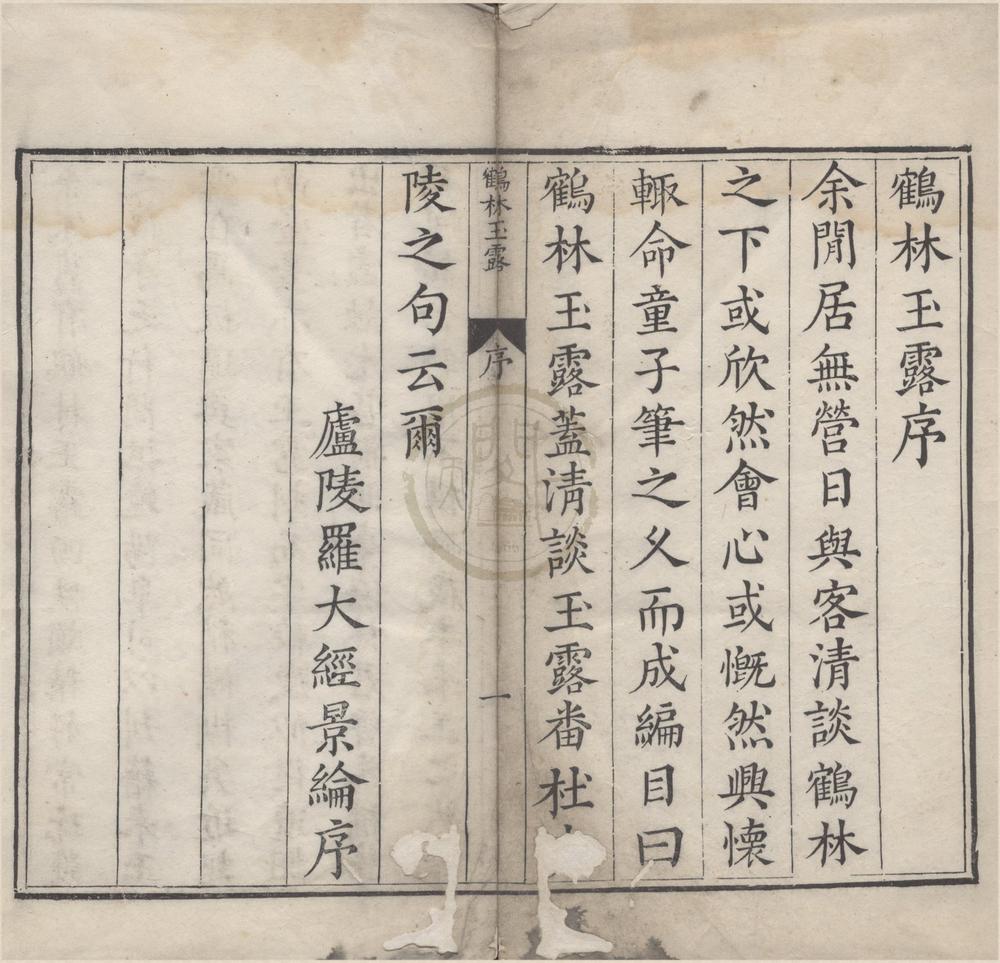 鶴林玉露序
余閒居無營日與客清談鶴林
之下或欣然會心或慨然興懷
輙命童子筆之久而成編目曰
鶴林玉露蓋清談玉露畨杜
鶴林玉露 序 一
陵之句云爾
廬陵羅大經景綸序